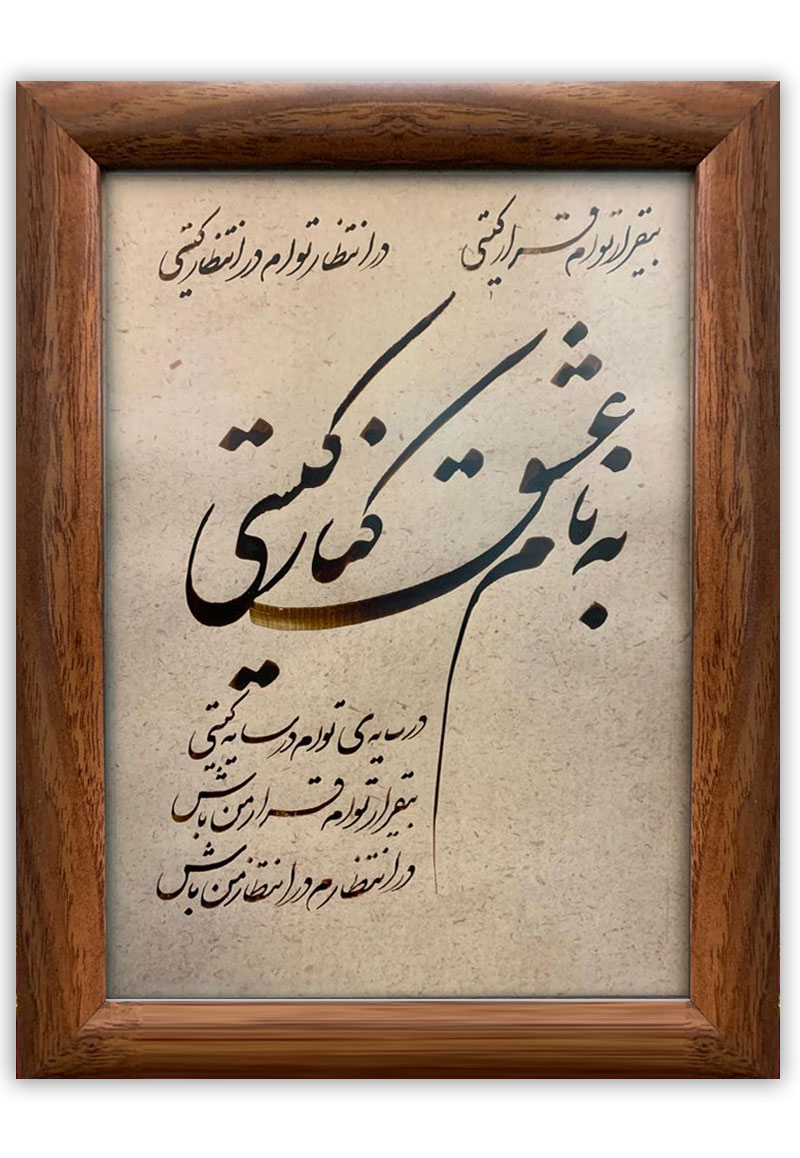 بیقرار توام قرار کیستی
در انتظار توام در انتظار کیستی
به نام عشق کنار کیستی
در سایه ی توام در سایه کیستی
بیقرار توام قرار من باش
در انتظارم در انتظار من باش